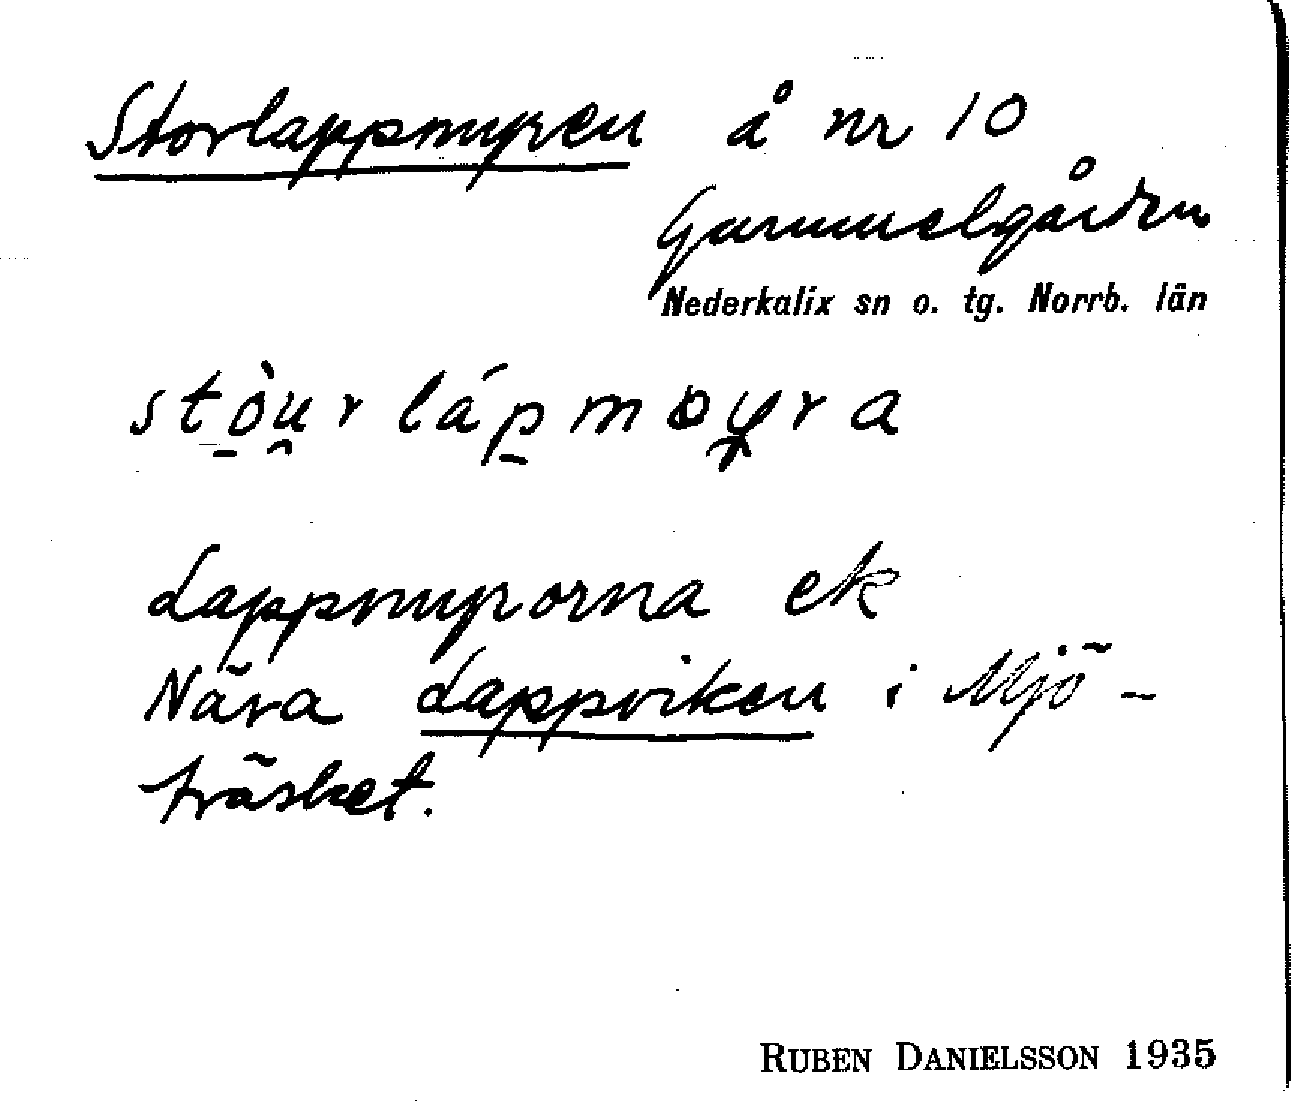 Storlappmyren å nr 10
Gammelgården
Nederkalix sn o. tg. Norrb. län
stòu̯r láp̠mɷy̯ra
Lappmyrorna ek
Nära Lappviken i Mjö-
träsket.
RUBEN DANIELSSON 1935